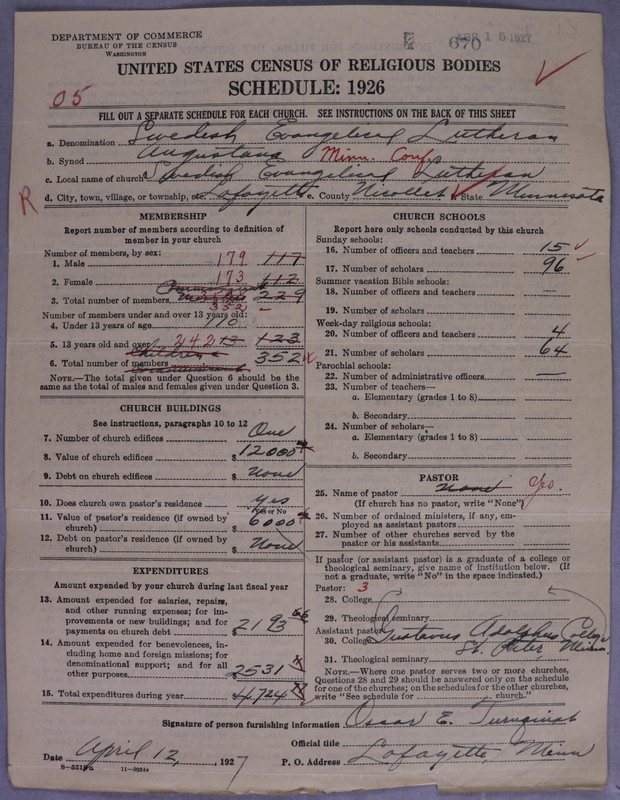 DEPARTMENT OF COMMERCE
BUREAU OF THE CENSUS
WASHINGTON
APR 15 1927
670
UNITED STATES CENSUS OF RELIGIOUS BODIES
SCHEDULE: 1926
05
FILL OUT A SEPARATE SCHEDULE FOR EACH CHURCH. SEE INSTRUCTIONS ON THE BACK OF THIS SHEET
a. Denomination Swedish Evangelical Lutheran
b. Synod Augustana Minn. Conf.
c. Local name of church Swedish Evangelical Lutheran
d. City, town, village, or township, etc. Lafayette e. County Nicollet State Minnesota
R
MEMBERSHIP
Report number of members according to definition of member in your church
Number of members, by sex:
1. Male 179 117
2. Female 173 112
3. Total number of members 229
352
Number of members under and over 13 years old:
4. Under 13 years of age 110
5. 13 years old and over 242 13 123
Children
6. Total number of members 352
NOTE.—The total given under Question 6 should be the same as the total of males and females given under Question 3.
CHURCH BUILDINGS
See instructions, paragraphs 10 to 12
7. Number of church edifices One
8. Value of church edifices $12000
9. Debt on church edifices $ None
10. Does church own pastor's residence Yes
Yes or No
11. Value of pastor's residence (if owned by church) $6000
12. Debt on pastor's residence (if owned by church) $ None
EXPENDITURES
Amount expended by your church during last fiscal year
13. Amount expended for salaries, repairs, and other running expenses; for improvements or new buildings; and for payments on church debt $2193
14. Amount expended for benevolences, including home and foreign missions; for denominational support; and for all other purposes 2531
15. Total expenditures during year $4724
CHURCH SCHOOLS
Report here only schools conducted by this church
Sunday schools:
16. Number of officers and teachers 15
17. Number of scholars 96
Summer vacation Bible schools:
18. Number of officers and teachers —
19. Number of scholars
Week-day religious schools:
20. Number of officers and teachers 4
21. Number of scholars 64
Parochial schools:
22. Number of administrative officers —
23. Number of teachers—
a. Elementary (grades 1 to 8)
b. Secondary
24. Number of scholars—
a. Elementary (grades 1 to 8)
b. Secondary
PASTOR
25. Name of pastor None
(If church has no pastor, write "None")
26. Number of ordained ministers, if any, employed as assistant pastors
27. Number of other churches served by the pastor or his assistants
If pastor (or assistant pastor) is a graduate of a college or theological seminary, give name of institution below. (If not a graduate, write "No" in the space indicated.)
Pastor: 3
28. College
29. Theological seminary
Assistant pastor:
30. College Gustavus Adolphus College
St. Peter, Minn.
31. Theological seminary
NOTE.—Where one pastor serves two or more churches, Questions 28 and 29 should be answered only on the schedule for one of the churches; on the schedules for the other churches, write "See schedule for church."
Signature of person furnishing information Oscar E.
Official title
Date April 12, 1927 P. O. Address Lafayette, Minn